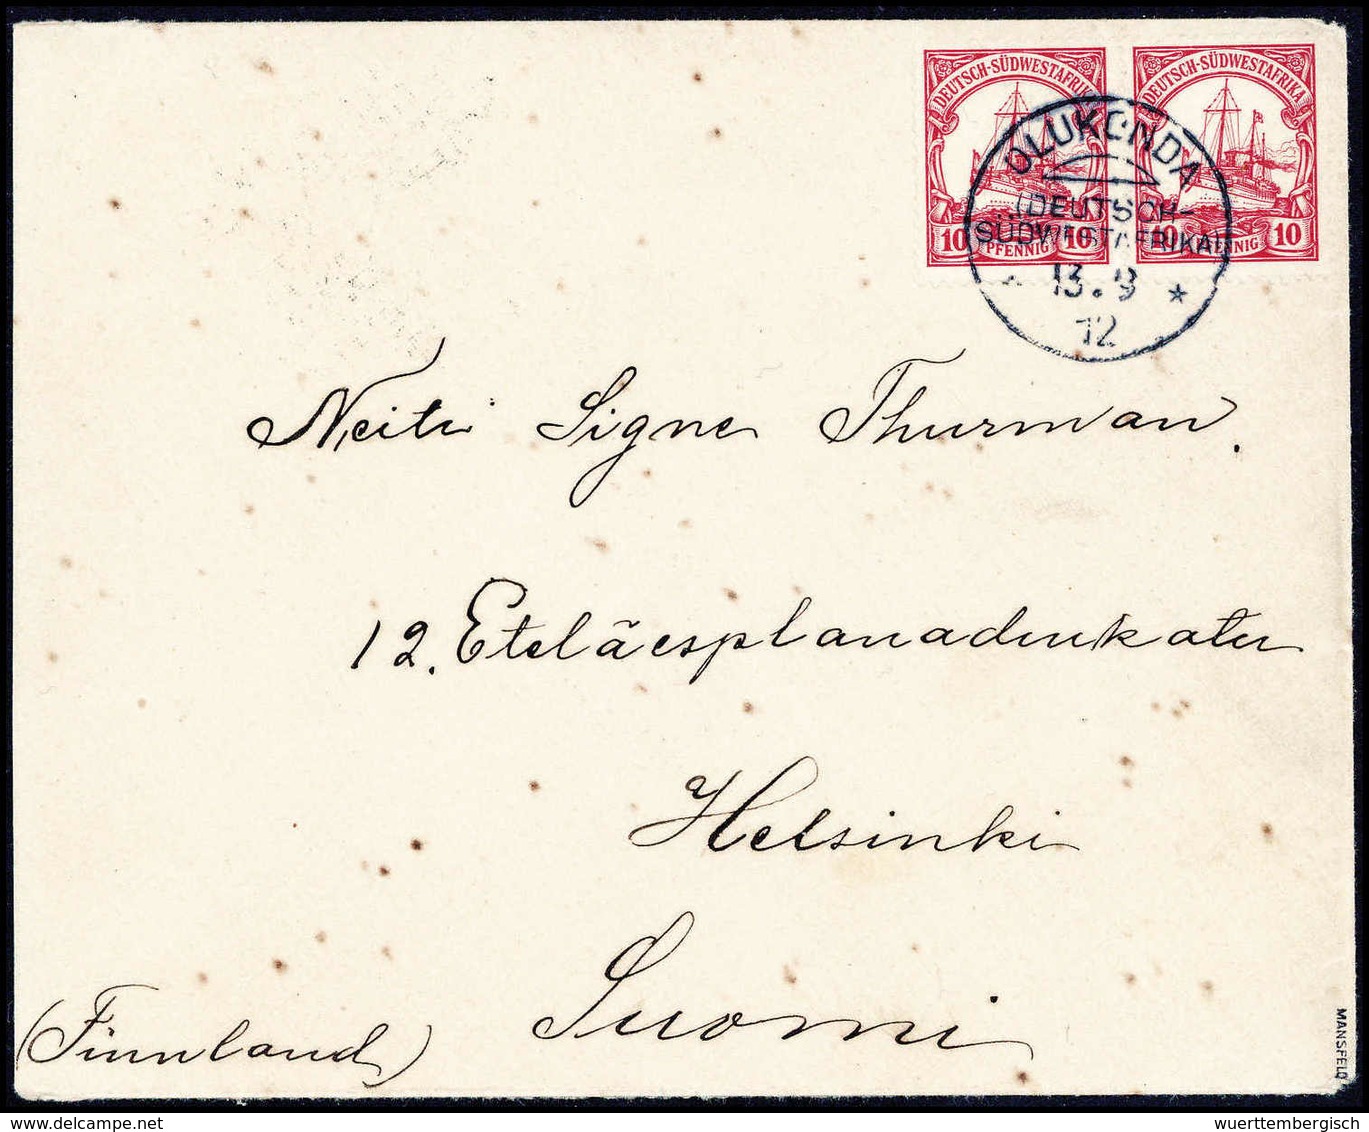 DEUTSCH-SÜDWESTAFRIKA DEUTSCH-SÜDWESTAFRIKA
10 PFENNIG 10 10 PFENNIG 10
OLUKONDA
(DEUTSCH-
SÜDWESTAFRIKA)
13.9
12
Neiti Signe Thurman.
12. Eteläesplanadinkatu
Helsinki
Suomi
(Finnland)
MANSFELD
delcampe.net
wuerttembergisch